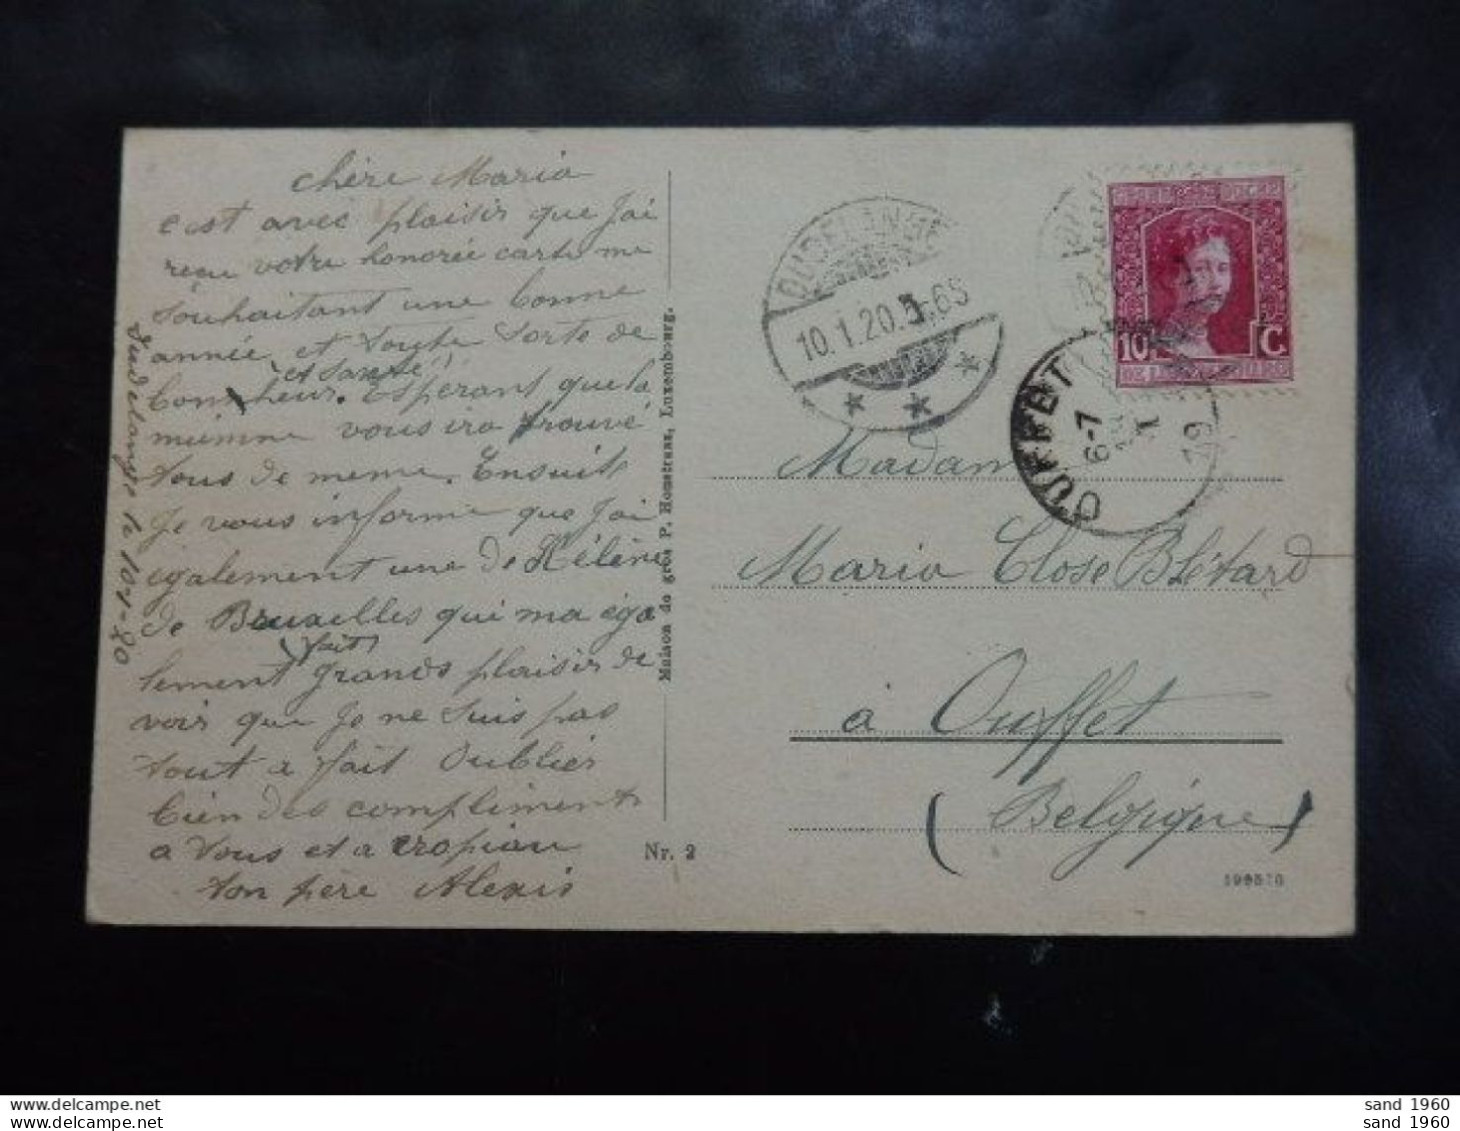 chère Maria
c est avec plaisir que Jai
reçu votre honorée carte me
souhaitant une bonne
année et toute sorte de
et santé
bonheur. Espérant que la
mienne vous ira trouvé
tous de meme. Ensuite
Je vous informe que Jai
également une de Hélène
de Bruxelles qui ma éga
fait
lement grands plaisir de
voir que Je ne suis pas
tout a fait oublier
bien des compliments
a vous et a
ton père Alexis
Maison de gros P. Houstraas, Luxembourg.
Nr. 2
DUDELANGE
10.1.20.
OUFFET
6-7
19
10 C.
Madame
Maria Close Blétard
à Ouffet
(Belgique)
sand 1960
sand 1960